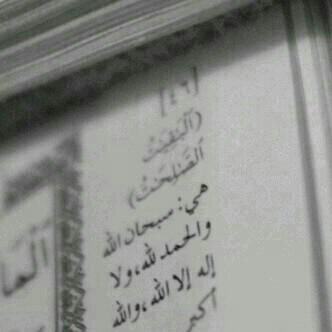 [٤٦]
﴿ٱلْبَٰقِيَٰتُ
ٱلصَّٰلِحَٰتُ﴾
هي: سبحان الله
والحمد لله، ولا
إله إلا الله، والله
أكبر